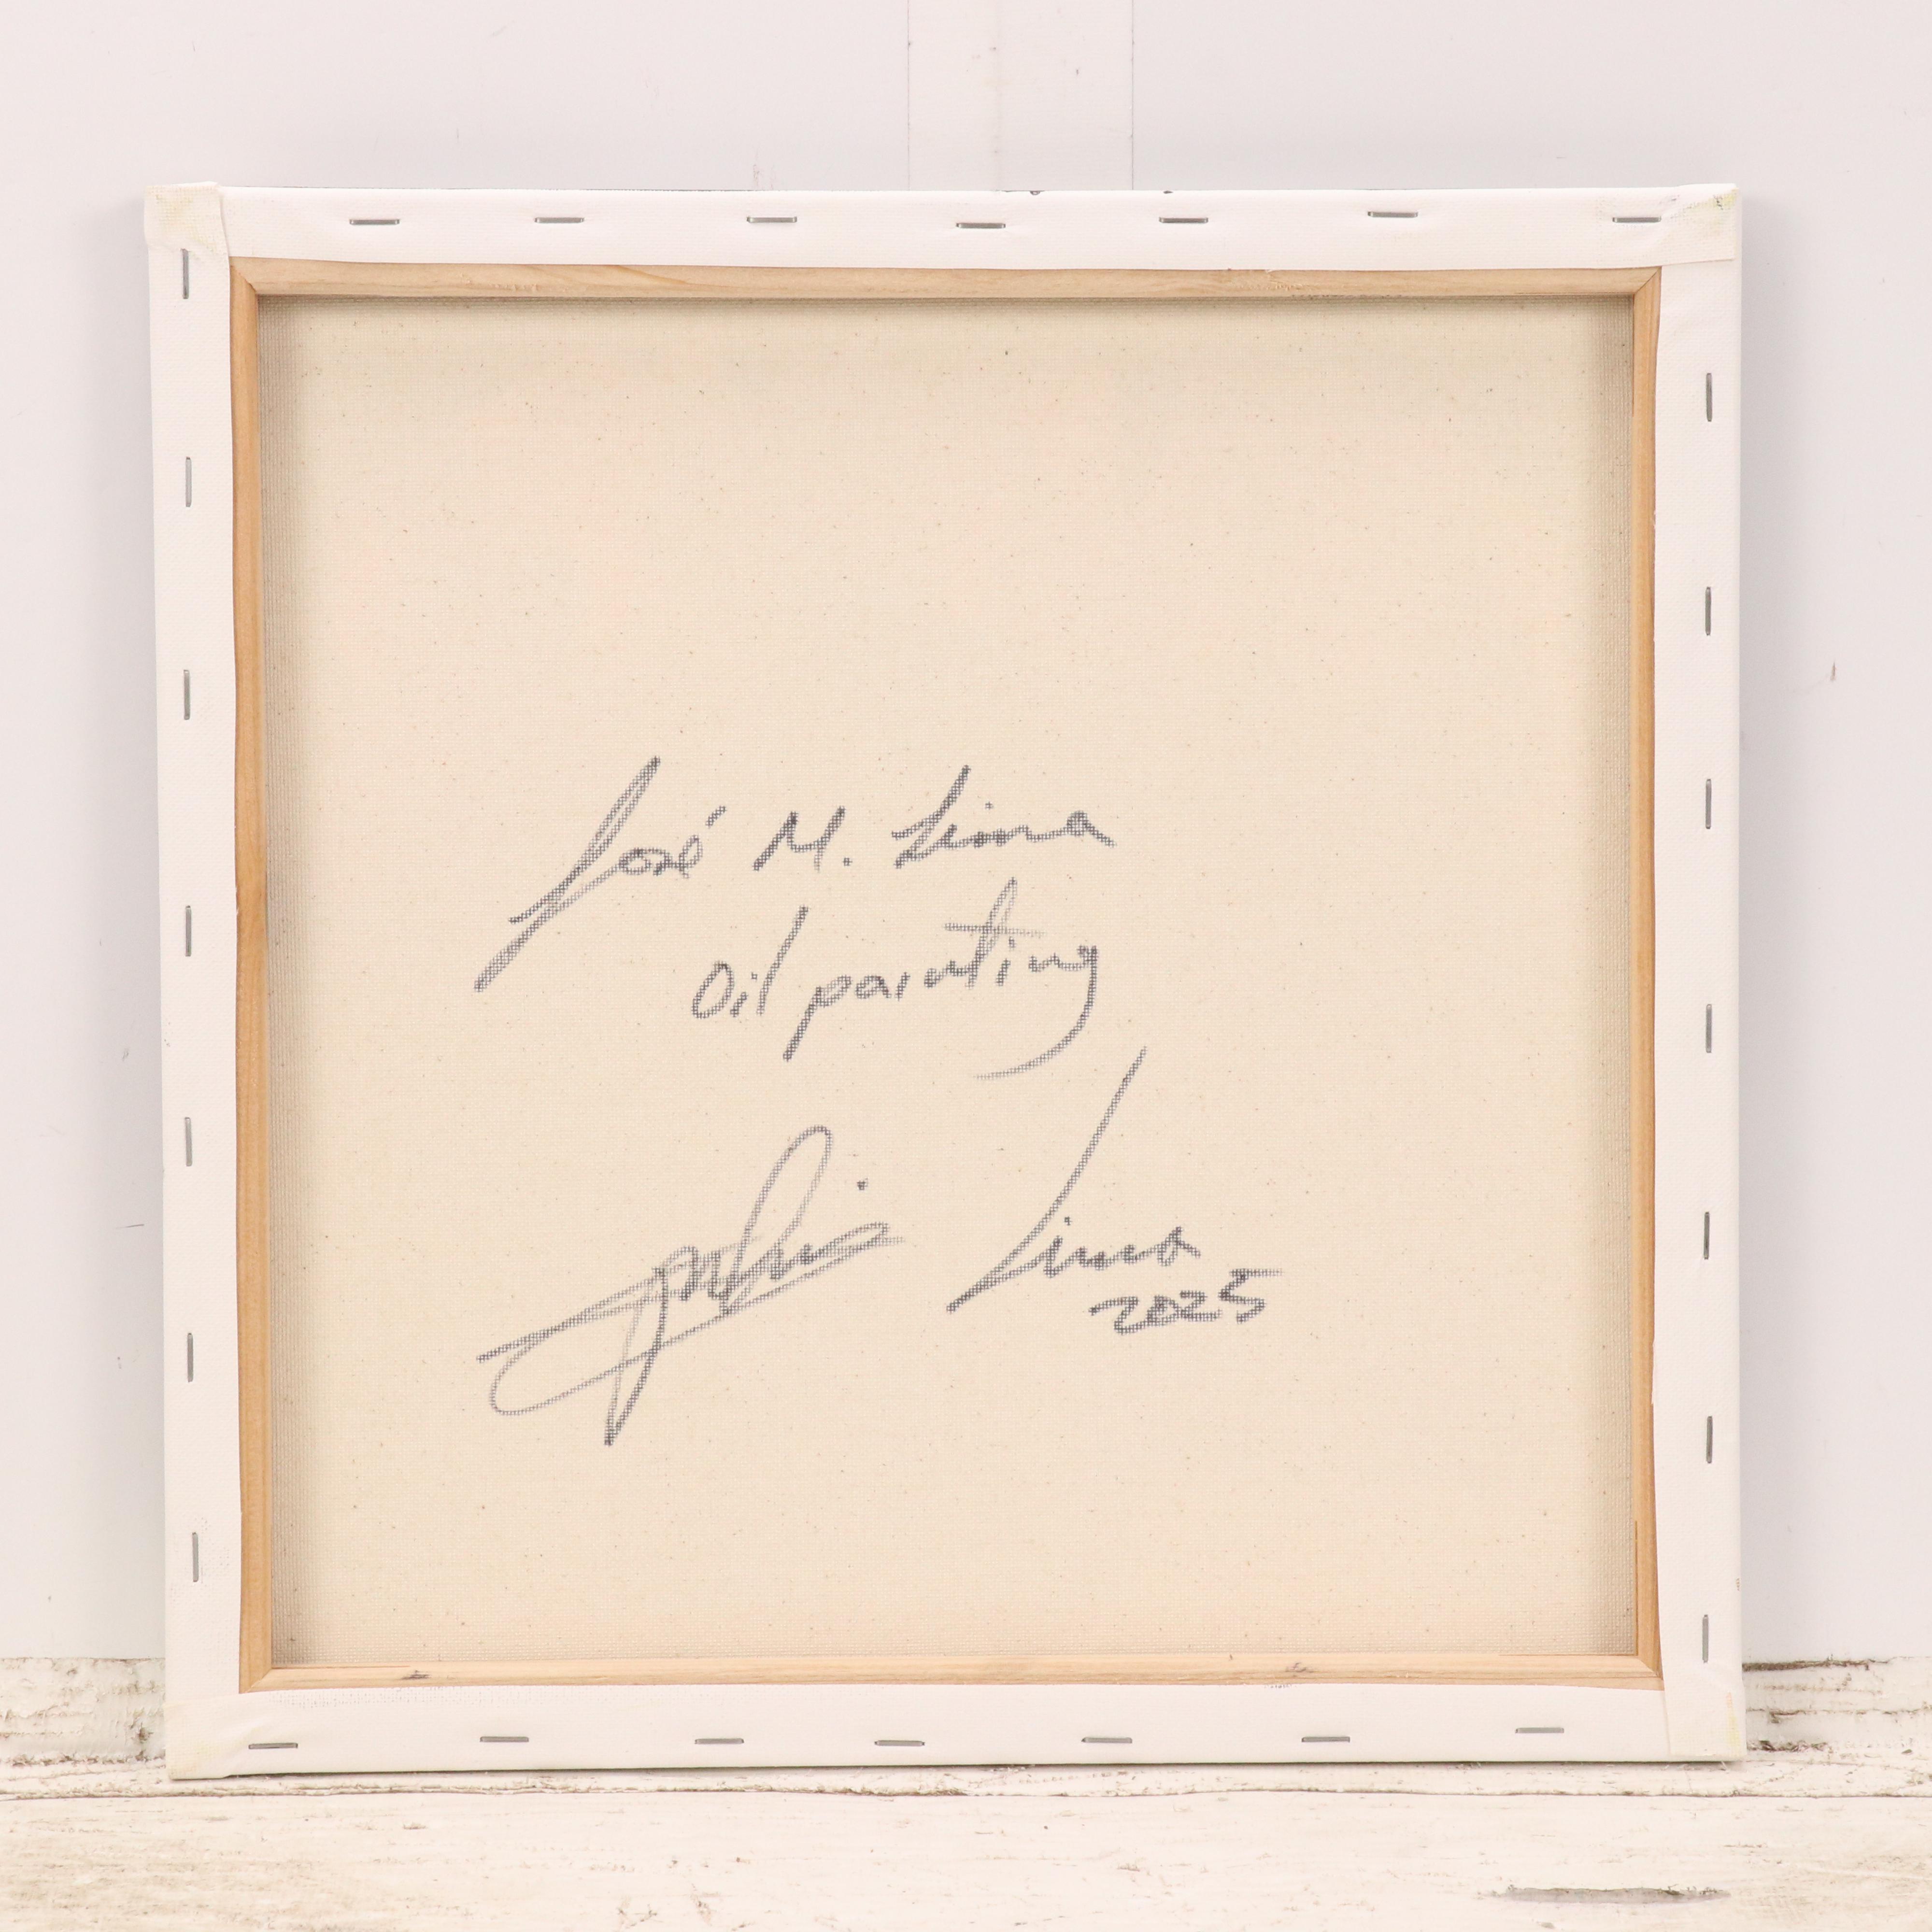 José M. Lima
Oil painting
Lima
2025